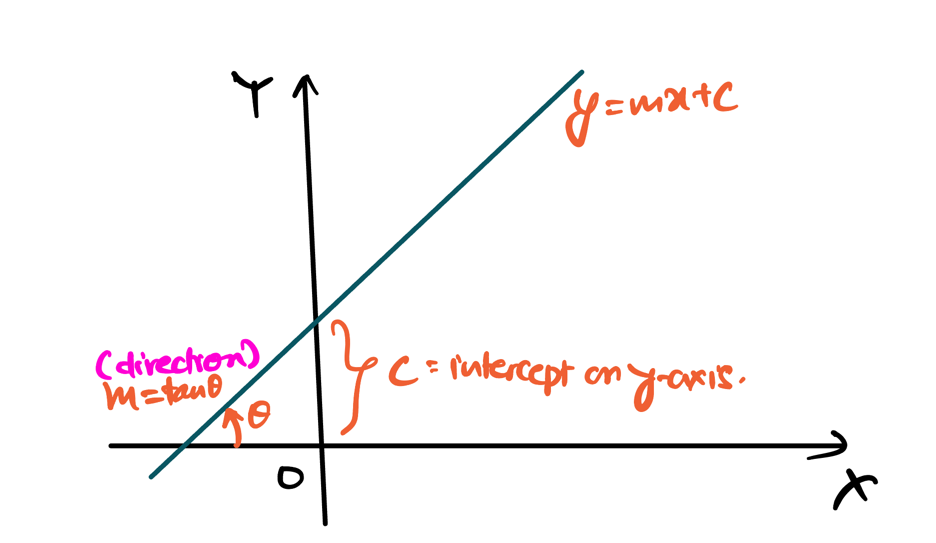 Y
y=mx+c
(direction)
m=tanθ
θ
c = intercept on y-axis.
O
X